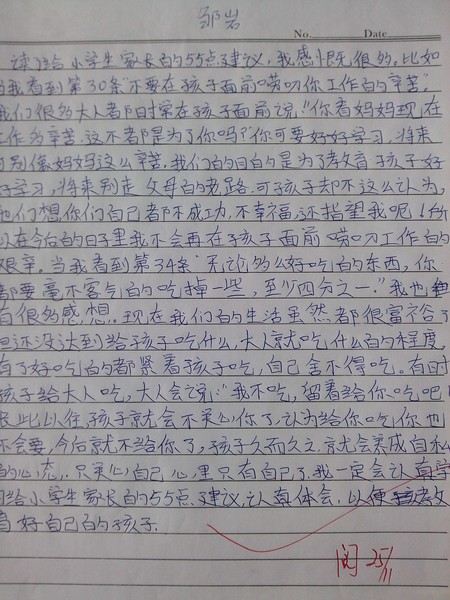 邹岩
No. Date
读了给小学生家长的55点建议,我感慨很的。比如
当我看到第30条"不要在孩子面前唠叨你工作的辛苦"。
我们很多大人都时常在孩子面前说:"你看妈妈现在
工作多辛苦.这不都是为了你吗?"你可要好好学习,将来
可别像妈妈这么辛苦.我们的目的是为了教育孩子好
好学习,将来别走父母的老路.可孩子却不这么认为,
他们想你们自己都不成功.不幸福,还指望我呢!所
以在今后的日子里我不会再在孩子面前唠叨工作的
艰辛。当我看到第34条"无论多么好吃的东西,你
都要毫不客气的吃掉一些,至少四分之一."我也
有很多感想.现在我们的生活虽然都很富裕了
但还没达到给孩子吃什么,大人就吃什么的程度,
有了好吃的都紧着孩子吃,自己舍不得吃。有时
孩子给大人吃,大人会说:"我不吃,留着给你吃吧!
长此以往,孩子就会不关心你了,认为给你吃你也
不会要,今后就不给你了,孩子久而久之.就会养成自私
的心态,.只关心自己心里只有自己了.我一定会认真学
习给小学生家长的55点.建议,认真体会,以便教
育好自己的孩子.
阅 25/11